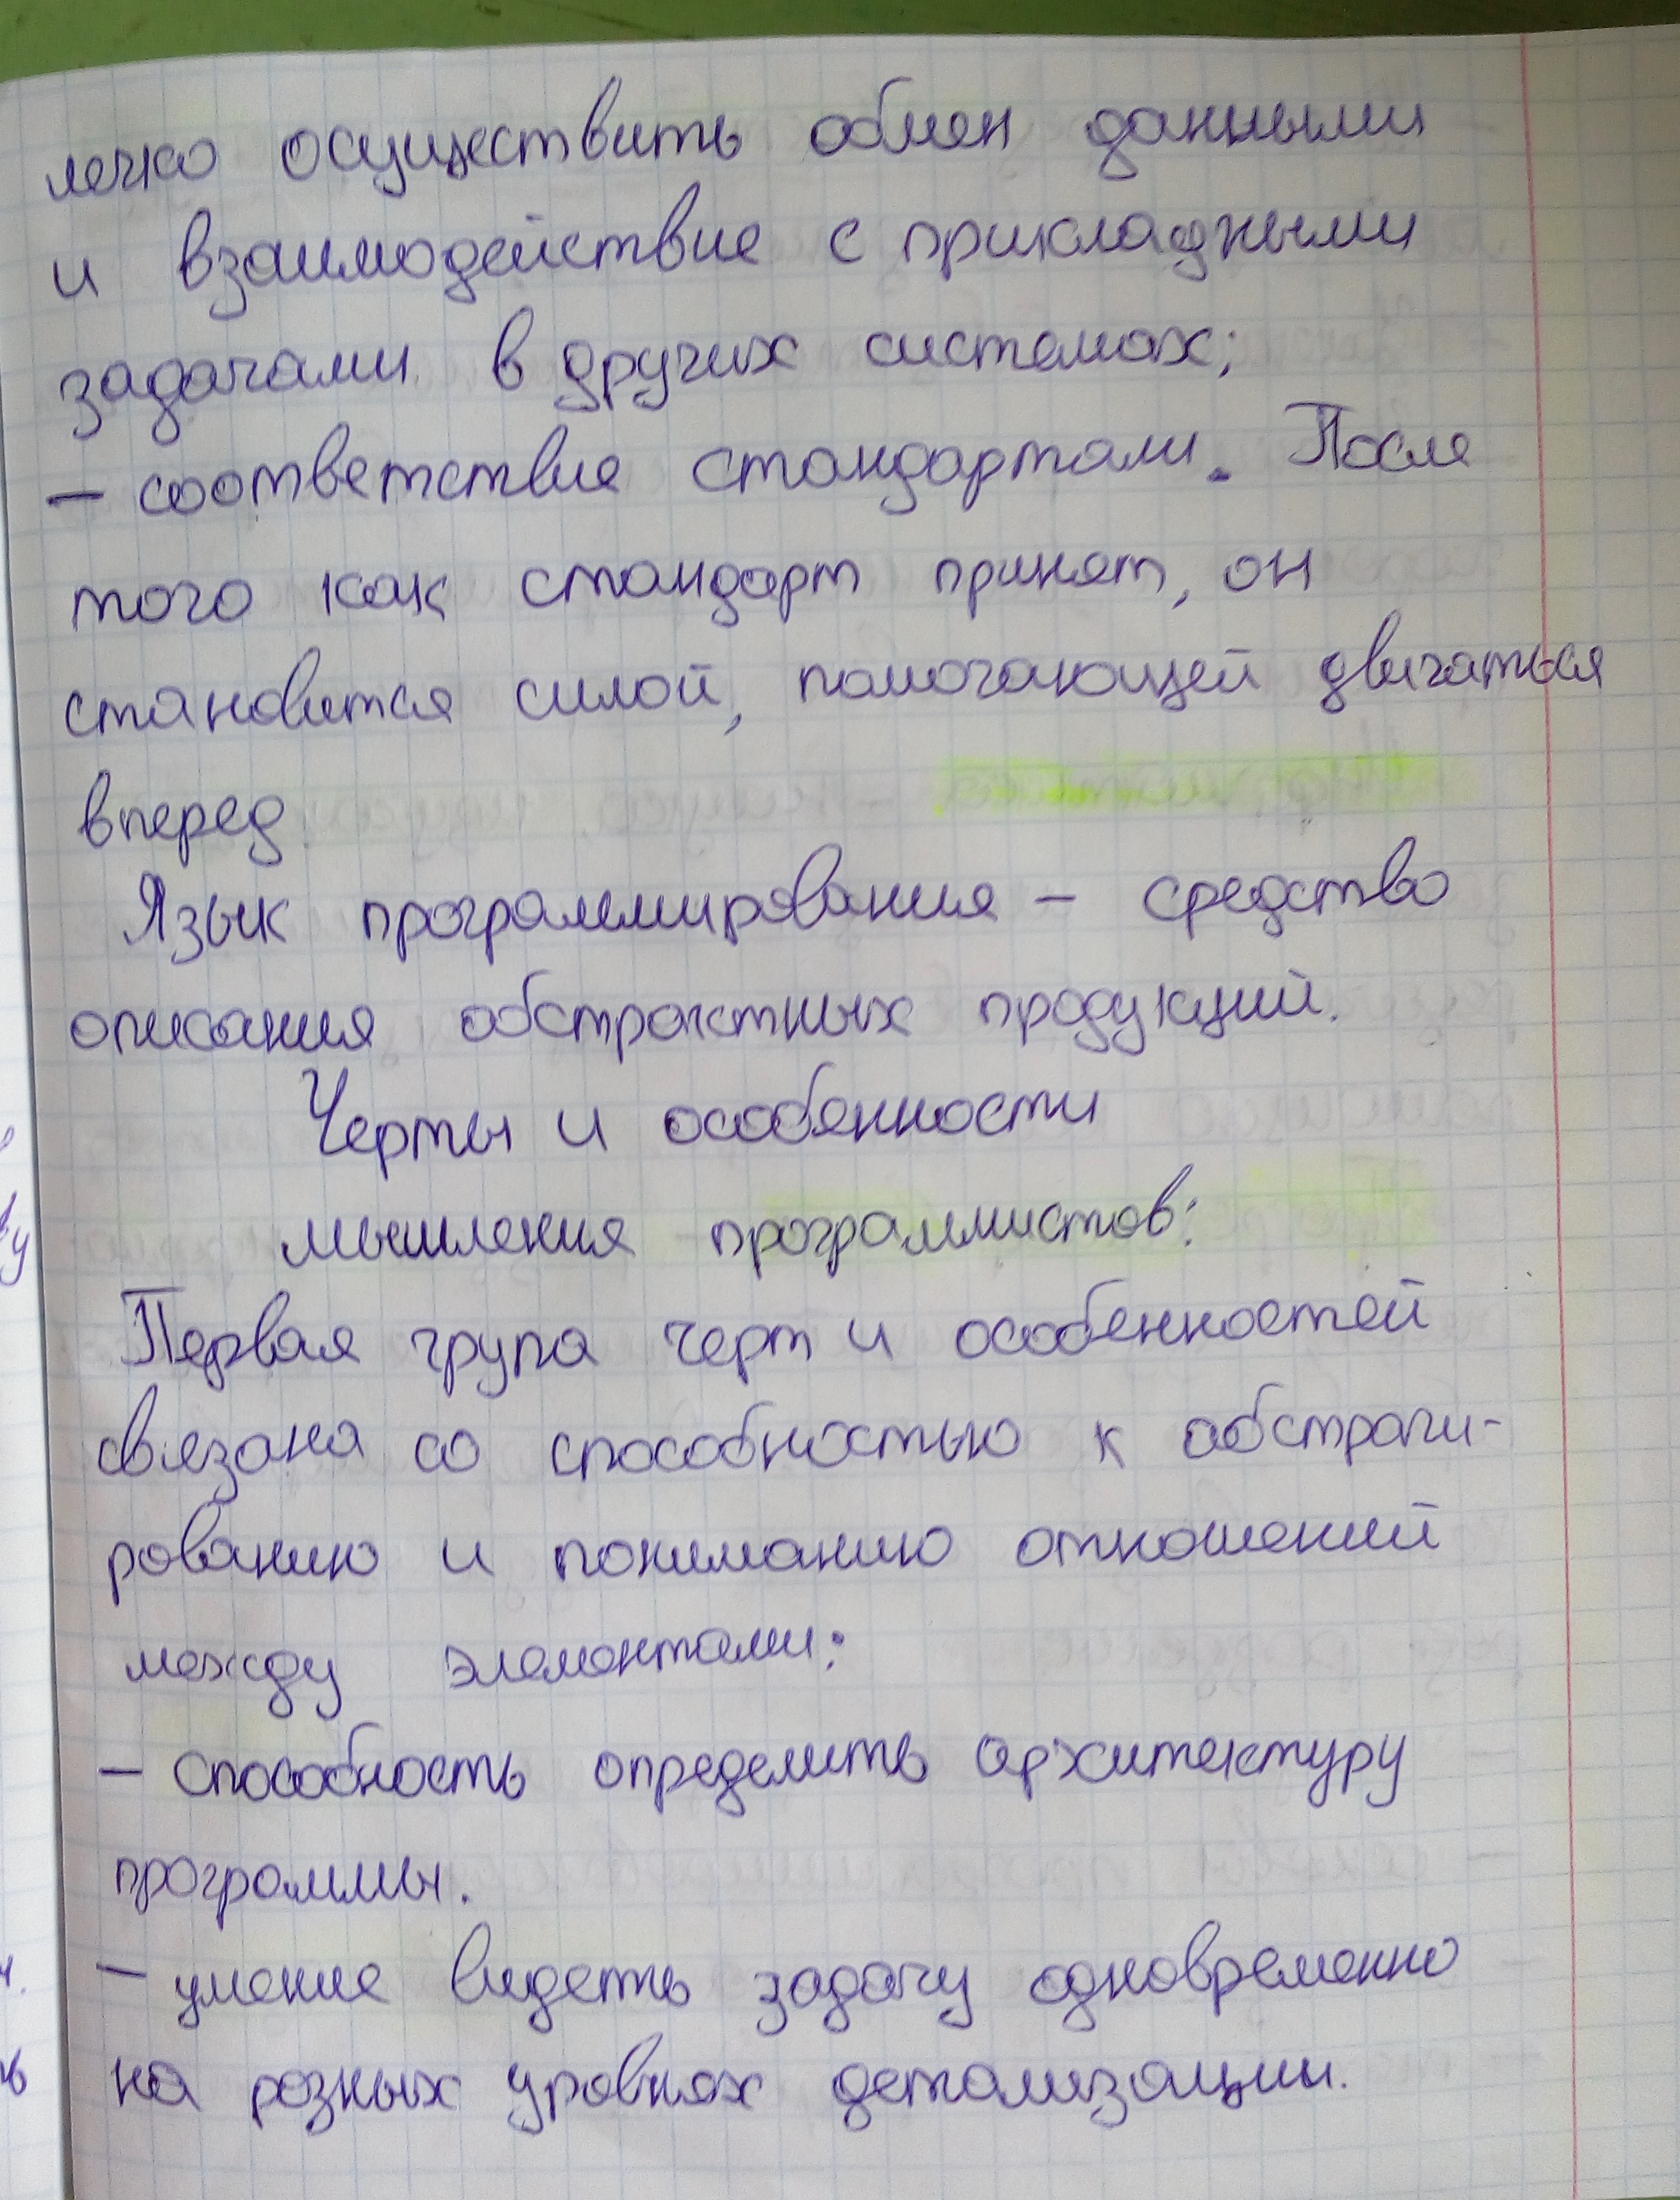 легко осуществить обмен данными
и взаимодействие с прикладными
задачами в других системах;
– соответствие стандартам. После
того как стандарт принят, он
становится силой, помогающей двигаться
вперед
Язык программирования – средство
описания абстрактных продукций.
Черты и особенности
мышления программистов:
Первая група черт и особенностей
связана со способностью к абстраги-
рованию и пониманию отношений
между элементами:
– способность определить архитектуру
программы.
– умение видеть задачу одновременно
на разных уровнях детализации.